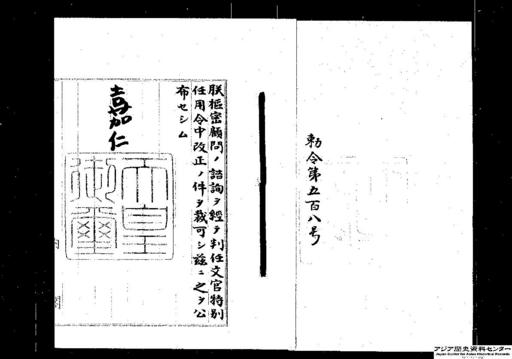 勅令第五百八号
朕枢密顧問ノ諮詢ヲ経テ判任文官特別
任用令中改正ノ件ヲ裁可シ茲ニ之ヲ公
布セシム
嘉仁
天皇
御璽
アジア歴史資料センター
Japan Center for Asian Historical Records